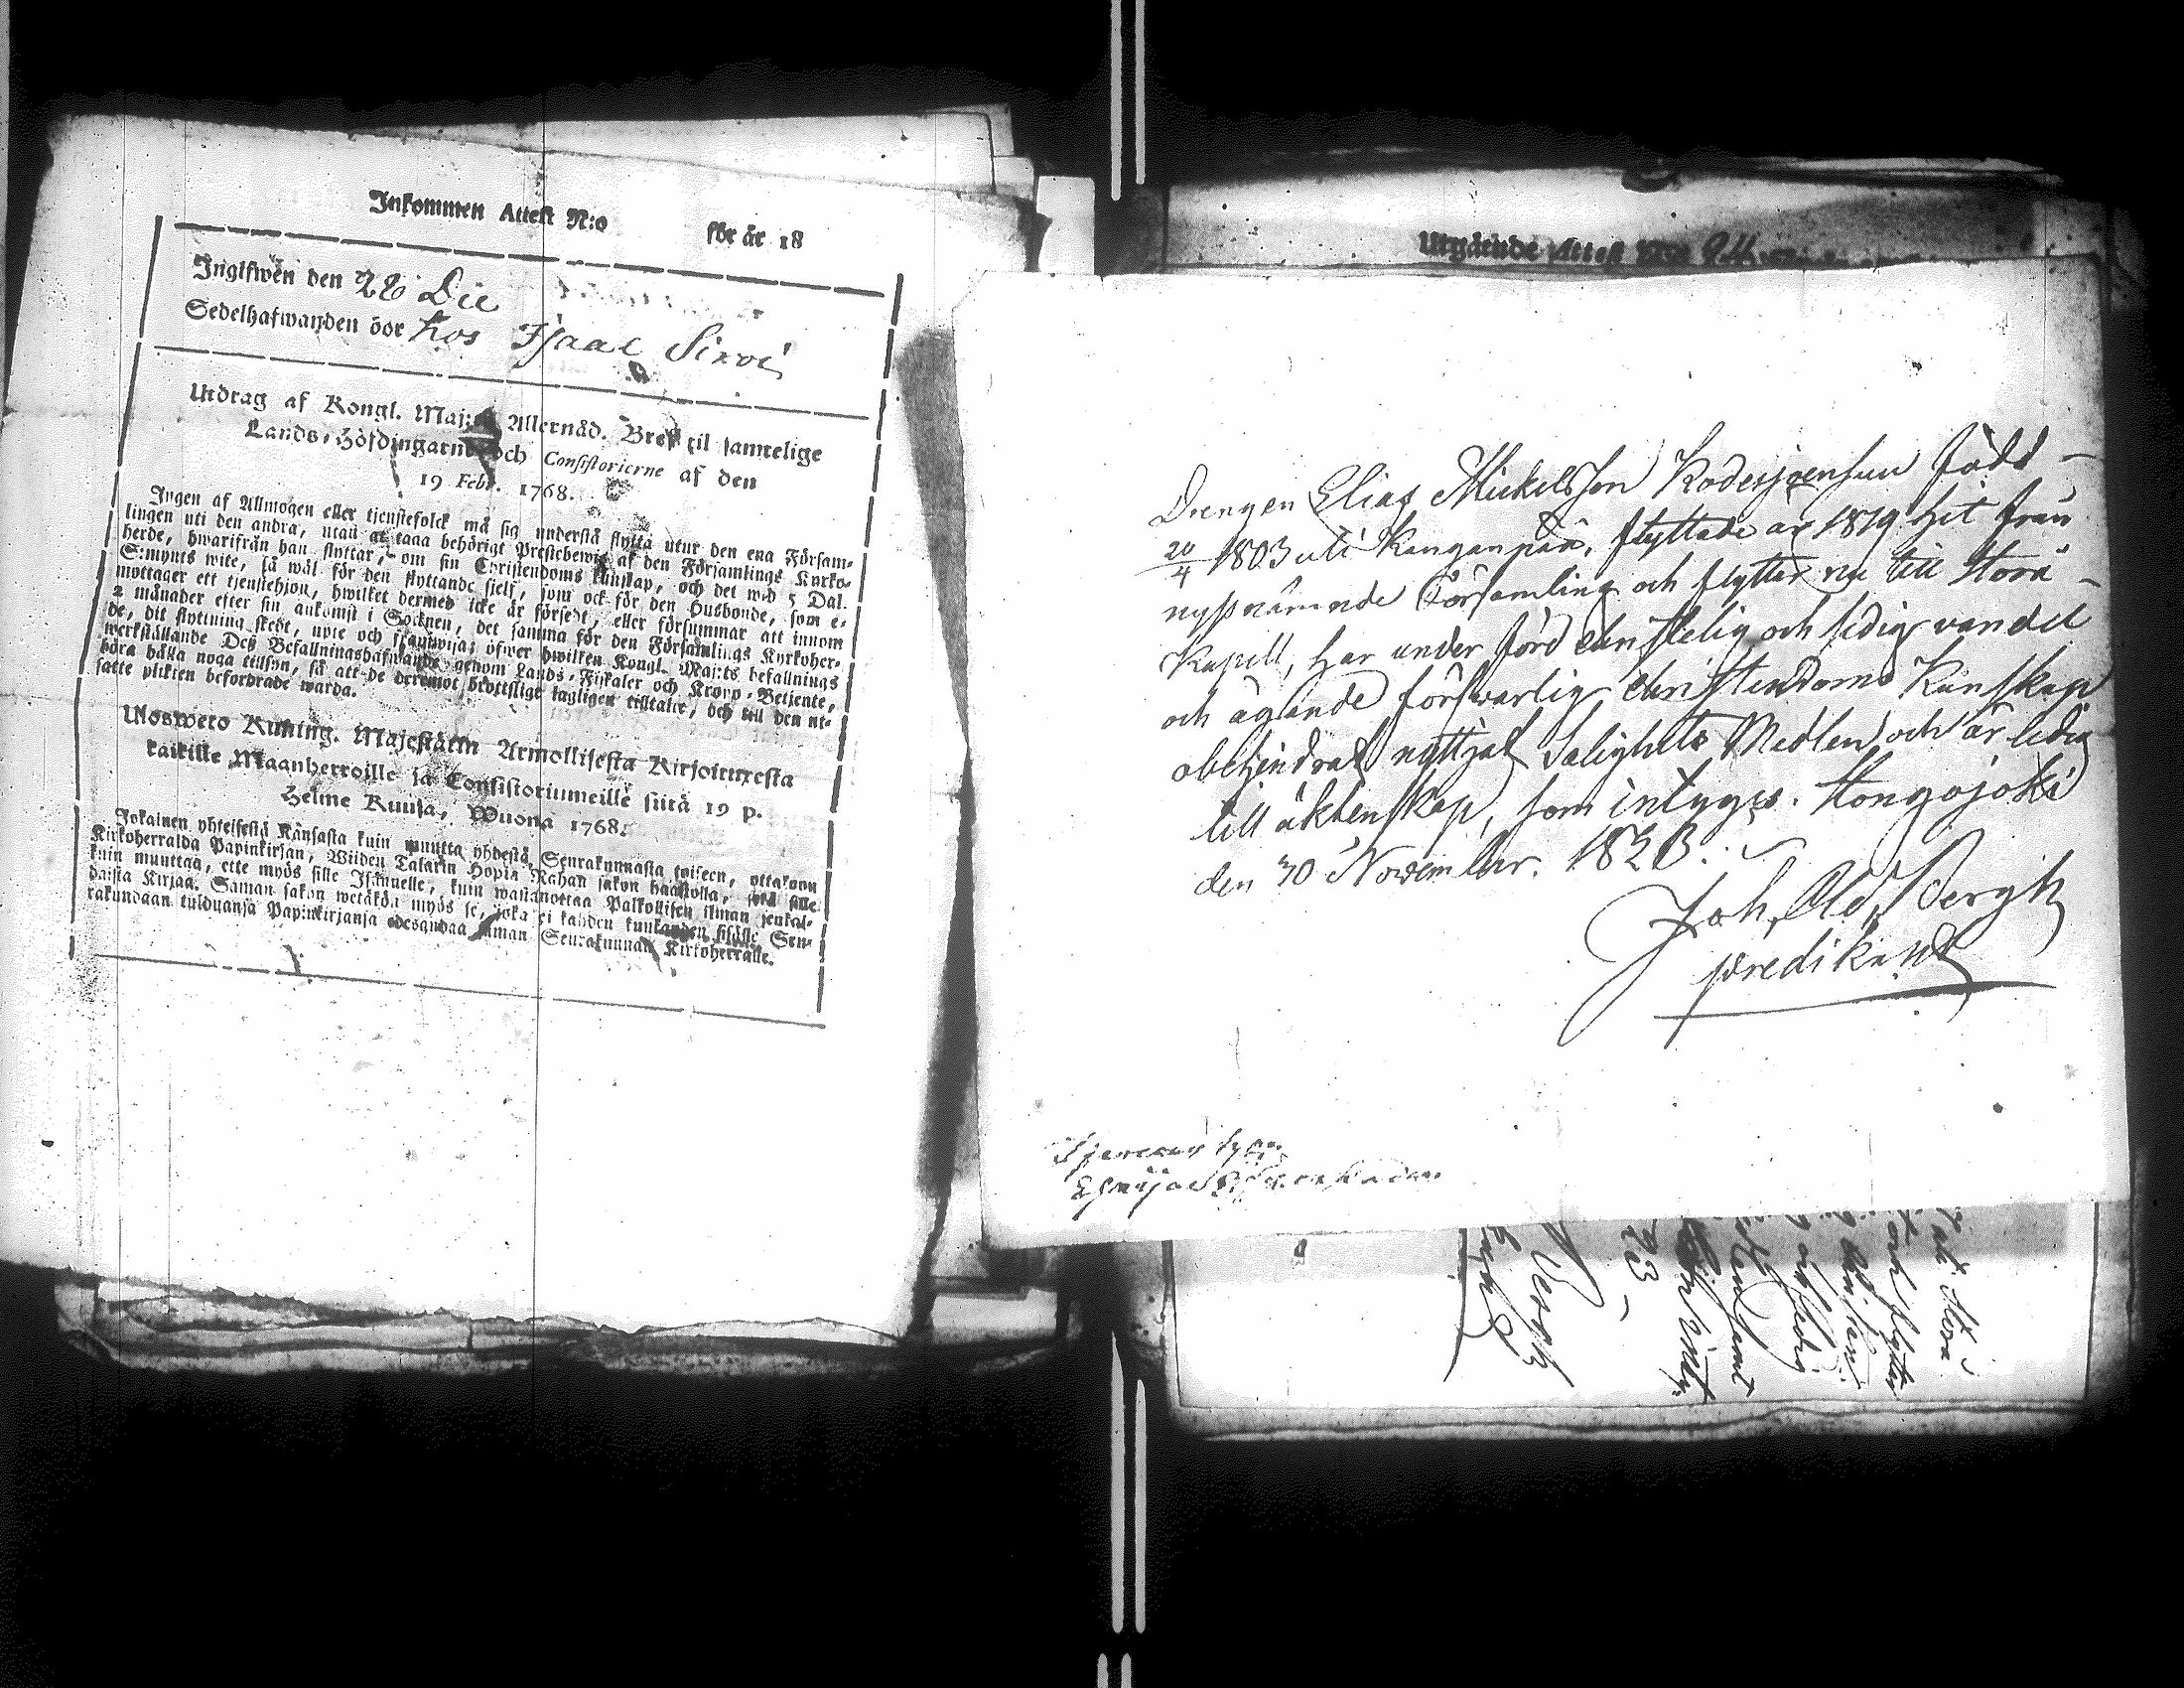 Inkommen Attest N:o för år 18
Inglfwen den 28 Die
Sedelhafwanden bor hos Isaac Sirvi
Utdrag af Kongl. Maj:ts Allernåd. Bref til samtelige
Lands-Höfdingarne och Consistorierne af den
19 Febr. 1768.
Ingen af Allmogen eller tjenstefolck må sig understå flytta utur den ena Försam-
lingen uti den andra, utan at taga behörigt Prestebewis af den Församlings Kyrko-
herde, hwarifrån han flyttar, om sin Christendoms kunskap, och det wid 5 Dal.
S:mynts wite, så wäl för den flyttande sjelf, som ock för den Husbonde, som e-
mottager ett tjenstehjon, hwilket dermed icke är försedt, eller försummar att innom
2 månader efter sin ankomst i Socknen, det samma för den Församlings Kyrkoher-
de, dit flyttning skedt, upte och framwisa; öfwer hwilken Kongl. Maj:ts befallnings
werkställande Deß Befallningshafwande genom Lands-Fiskaler och Krono-Betjente,
böra hålla noga tillsyn, så att de deremot brottslige lagligen tilltalte, och till den ut-
satte plikten befordrade warda.
Uloswero Kuning. Majestätin Armollisesta Kirjoituxesta
kaikille Maanherroille ja Consistoriumeille siitä 19 p.
Helme Kuusa, Wuona 1768.
Jokainen yhteisestä Kansasta kuin muutta yhdestä Seurakunnasta toiseen, ottakoon
Kirkoherralda Papinkirjan, Wiiden Talarin Hopia Rahan sakon haastolla, sekä sille
kuin muuttaa, ette myös sille Isännelle, kuin wastanottaa Palkollisen ilman senkal-
daista Kirjaa. Saman sakon wetäkön myös se, joka ei kahden kuukauden sisälle Seu-
rakundaan tulduansa Papinkirjansa edesanna saman Seurakunnan Kirkoherralle.
Utgående Attest N:o 94
Drengen Elias Mickelsson Kodesjoensuu född
20/4 1803 uti Kanganpää, flyttade år 1819 hit från
nyssnämnde Församling och flyttar nu till Storå
Kapell, har under förd christelig och sedig vandel
och ägande förswarlig christendoms Kunskap
obehindrat nyttjat Salighets Medlen och är ledig
till äktenskap, som intygas. Hongojoki
den 30 November. 1823.
Joh. Ad. Bergh
predikant